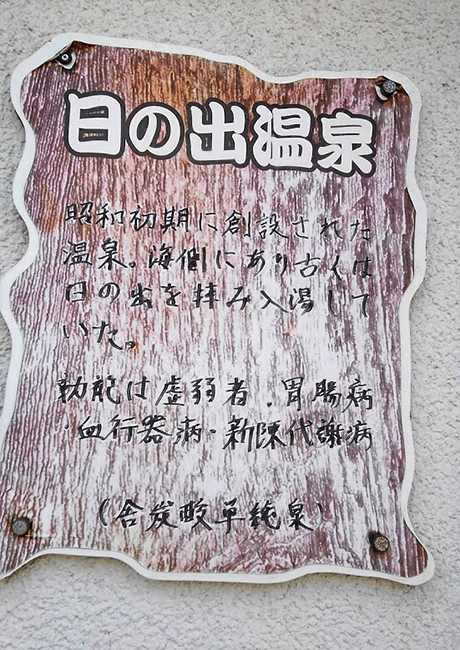 日の出温泉
昭和初期に創設された
温泉。海側にあり古くは
日の出を拝み入湯して
いた。
効能は虚弱者・胃腸病
・血行器病・新陳代謝病
(含炭酸単純泉)